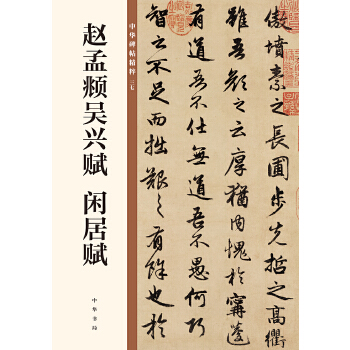 赵孟𫖯吴兴赋 闲居赋
中华碑帖精粹 三七
中华书局
傲墳素之長圃步先哲之高衢
雖吾顏之云厚猶内愧於甯蘧
有道吾不仕無道吾不愚何巧
智之不足而拙艱之有餘也於